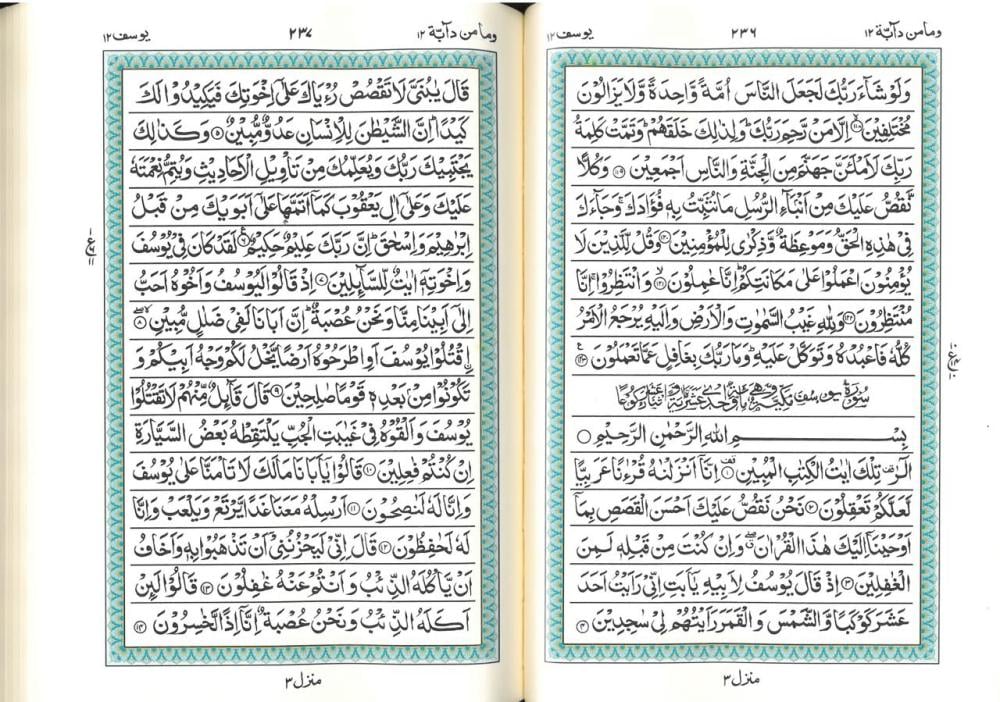 وما من دآبة ١٢
٢٣٦
يوسف ١٢
وَلَوْ شَآءَ رَبُّكَ لَجَعَلَ النَّاسَ اُمَّةً وَّاحِدَةً وَّلَا يَزَالُوْنَ
مُخْتَلِفِيْنَ ﴿۱۱۸﴾ اِلَّا مَنْ رَّحِمَ رَبُّكَ ؕ وَلِذٰلِكَ خَلَقَهُمْ ؕ وَتَمَّتْ كَلِمَةُ
رَبِّكَ لَاَمْلَئَنَّ جَهَنَّمَ مِنَ الْجِنَّةِ وَالنَّاسِ اَجْمَعِيْنَ ﴿۱۱۹﴾ وَكُلًّا
نَّقُصُّ عَلَيْكَ مِنْ اَنْۢبَآءِ الرُّسُلِ مَا نُثَبِّتُ بِهٖ فُؤَادَكَ ۚ وَجَآءَكَ
فِيْ هٰذِهِ الْحَقُّ وَمَوْعِظَةٌ وَّذِكْرٰى لِلْمُؤْمِنِيْنَ ﴿۱۲۰﴾ وَقُلْ لِّلَّذِيْنَ لَا
يُؤْمِنُوْنَ اعْمَلُوْا عَلٰى مَكَانَتِكُمْ ؕ اِنَّا عٰمِلُوْنَ ﴿۱۲۱﴾ وَانْتَظِرُوْا ۚ اِنَّا
مُنْتَظِرُوْنَ ﴿۱۲۲﴾ وَلِلّٰهِ غَيْبُ السَّمٰوٰتِ وَالْاَرْضِ وَاِلَيْهِ يُرْجَعُ الْاَمْرُ
كُلُّهٗ فَاعْبُدْهُ وَتَوَكَّلْ عَلَيْهِ ؕ وَمَا رَبُّكَ بِغَافِلٍ عَمَّا تَعْمَلُوْنَ ﴿۱۲۳﴾
سُوْرَةُ يُوْسُفَ مَكِّيَّةٌ
بِسْمِ اللّٰهِ الرَّحْمٰنِ الرَّحِيْمِ
الٓرٰ ۫ تِلْكَ اٰيٰتُ الْكِتٰبِ الْمُبِيْنِ ﴿۱﴾ اِنَّاۤ اَنْزَلْنٰهُ قُرْءٰنًا عَرَبِيًّا
لَّعَلَّكُمْ تَعْقِلُوْنَ ﴿۲﴾ نَحْنُ نَقُصُّ عَلَيْكَ اَحْسَنَ الْقَصَصِ بِمَاۤ
اَوْحَيْنَاۤ اِلَيْكَ هٰذَا الْقُرْاٰنَ ۖ وَاِنْ كُنْتَ مِنْ قَبْلِهٖ لَمِنَ
الْغٰفِلِيْنَ ﴿۳﴾ اِذْ قَالَ يُوْسُفُ لِاَبِيْهِ يٰۤاَبَتِ اِنِّيْ رَاَيْتُ اَحَدَ
عَشَرَ كَوْكَبًا وَّالشَّمْسَ وَالْقَمَرَ رَاَيْتُهُمْ لِيْ سٰجِدِيْنَ ﴿۴﴾
منزل ٣
وما من دآبة ١٢
٢٣٧
يوسف ١٢
قَالَ يٰبُنَيَّ لَا تَقْصُصْ رُءْيَاكَ عَلٰۤى اِخْوَتِكَ فَيَكِيْدُوْا لَكَ
كَيْدًا ؕ اِنَّ الشَّيْطٰنَ لِلْاِنْسَانِ عَدُوٌّ مُّبِيْنٌ ﴿۵﴾ وَكَذٰلِكَ
يَجْتَبِيْكَ رَبُّكَ وَيُعَلِّمُكَ مِنْ تَاْوِيْلِ الْاَحَادِيْثِ وَيُتِمُّ نِعْمَتَهٗ
عَلَيْكَ وَعَلٰۤى اٰلِ يَعْقُوْبَ كَمَاۤ اَتَمَّهَا عَلٰۤى اَبَوَيْكَ مِنْ قَبْلُ
اِبْرٰهِيْمَ وَاِسْحٰقَ ؕ اِنَّ رَبَّكَ عَلِيْمٌ حَكِيْمٌ ﴿۶﴾ لَقَدْ كَانَ فِيْ يُوْسُفَ
وَاِخْوَتِهٖۤ اٰيٰتٌ لِّلسَّآىِٕلِيْنَ ﴿۷﴾ اِذْ قَالُوْا لَيُوْسُفُ وَاَخُوْهُ اَحَبُّ
اِلٰۤى اَبِيْنَا مِنَّا وَنَحْنُ عُصْبَةٌ ؕ اِنَّ اَبَانَا لَفِيْ ضَلٰلٍ مُّبِيْنِ ﴿۸﴾
ۣاقْتُلُوْا يُوْسُفَ اَوِ اطْرَحُوْهُ اَرْضًا يَّخْلُ لَكُمْ وَجْهُ اَبِيْكُمْ وَ
تَكُوْنُوْا مِنْۢ بَعْدِهٖ قَوْمًا صٰلِحِيْنَ ﴿۹﴾ قَالَ قَآىِٕلٌ مِّنْهُمْ لَا تَقْتُلُوْا
يُوْسُفَ وَاَلْقُوْهُ فِيْ غَيٰبَتِ الْجُبِّ يَلْتَقِطْهُ بَعْضُ السَّيَّارَةِ
اِنْ كُنْتُمْ فٰعِلِيْنَ ﴿۱۰﴾ قَالُوْا يٰۤاَبَانَا مَا لَكَ لَا تَاْمَنَّا عَلٰى يُوْسُفَ
وَاِنَّا لَهٗ لَنٰصِحُوْنَ ﴿۱۱﴾ اَرْسِلْهُ مَعَنَا غَدًا يَّرْتَعْ وَيَلْعَبْ وَاِنَّا
لَهٗ لَحٰفِظُوْنَ ﴿۱۲﴾ قَالَ اِنِّيْ لَيَحْزُنُنِيْۤ اَنْ تَذْهَبُوْا بِهٖ وَاَخَافُ
اَنْ يَّاْكُلَهُ الذِّئْبُ وَاَنْتُمْ عَنْهُ غٰفِلُوْنَ ﴿۱۳﴾ قَالُوْا لَىِٕنْ
اَكَلَهُ الذِّئْبُ وَنَحْنُ عُصْبَةٌ اِنَّاۤ اِذًا لَّخٰسِرُوْنَ ﴿۱۴﴾
منزل ٣